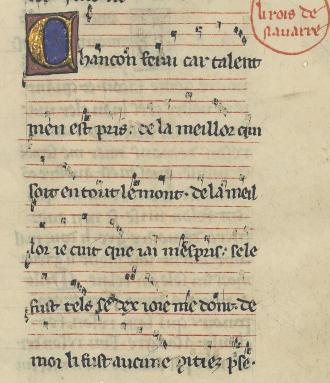 li rois de
nauarre
Chancon ferai car talent
men est pris. de la meillor qui
soit en tout le mont. de la meil
lor ie cuit que iai mespris. sele
fust tele se dex ioie me dont. de
moi li fust aucune pitiez pse.